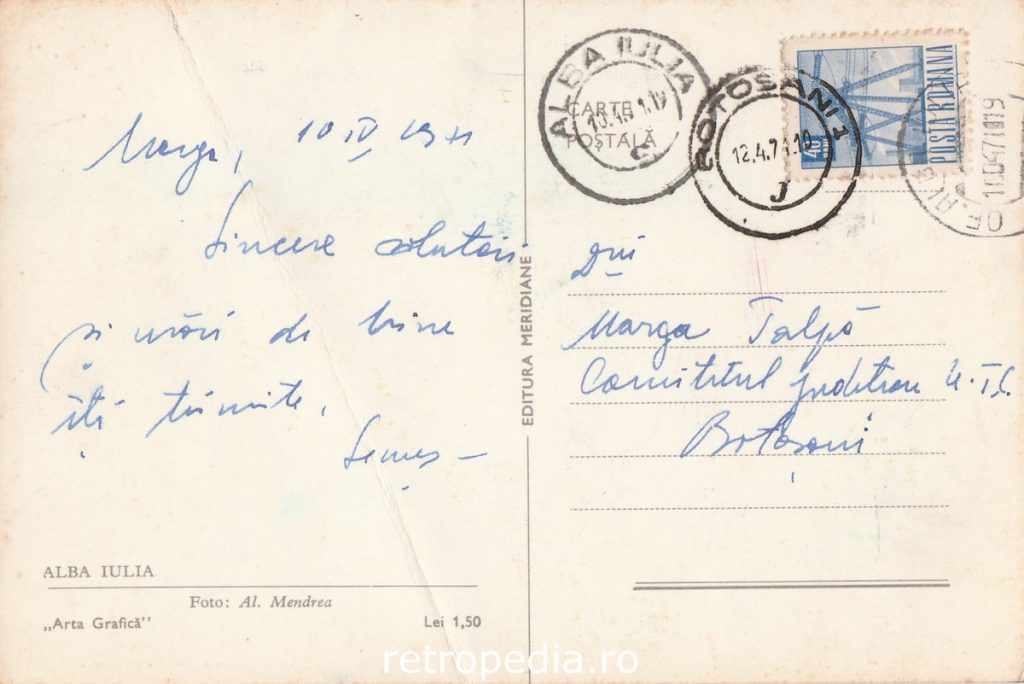 Marga, 10 IV 1971
Sincere salutări
și urări de bine
îți trimite,
ALBA IULIA
Foto: Al. Mendrea
„Arta Grafică”
Lei 1,50
EDITURA MERIDIANE
CARTE
POȘTALĂ
ALBA IULIA
BOTOSANI 1
12.4.71.10
J
40
POSTA ROMANA
OF.
Dnei
Marga Talpă
Comitetul județean U.T.C.
Botoșani
retropedia.ro